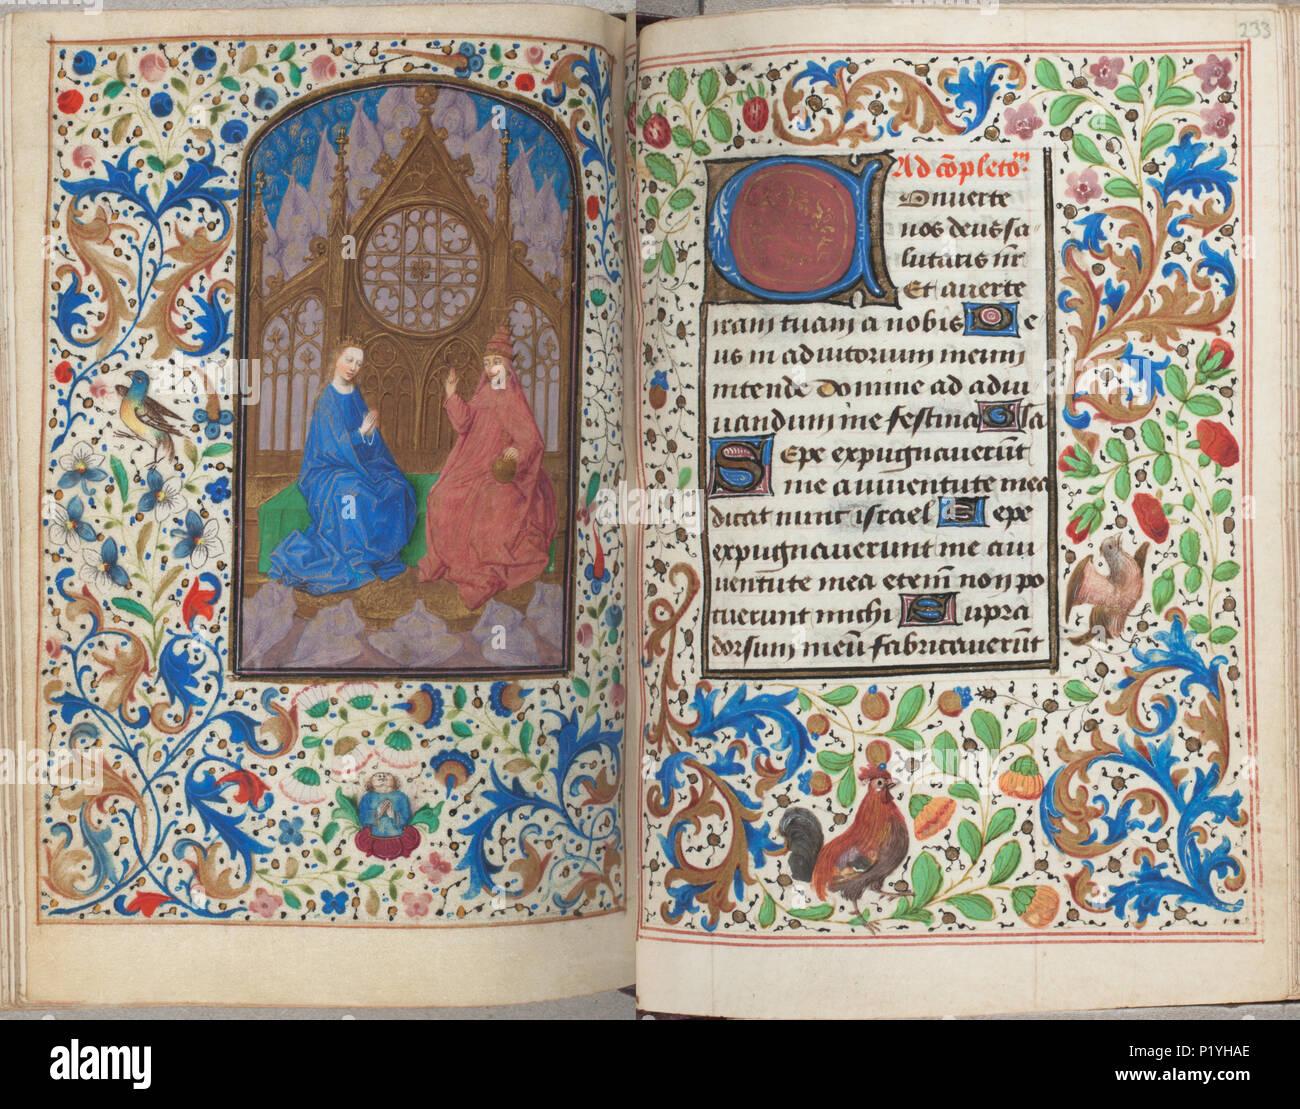 233
Ad cõpletoʳ.
Onuerte
nos deus sa-
lutaris nr̃
Et auerte
iram tuam a nobis De
us in adiutorium meum
intende Domine ad adiu
uandum me festina Gla
Sepe expugnauerũt
me a iuuentute mea
dicat nunc israel Sepe
expugnauerunt me a iu
uentute mea etem̃ non po
tuerunt michi Supra
dorsum meũ fabricauerũt
alamy
Image ID: P1YHAE
www.alamy.com